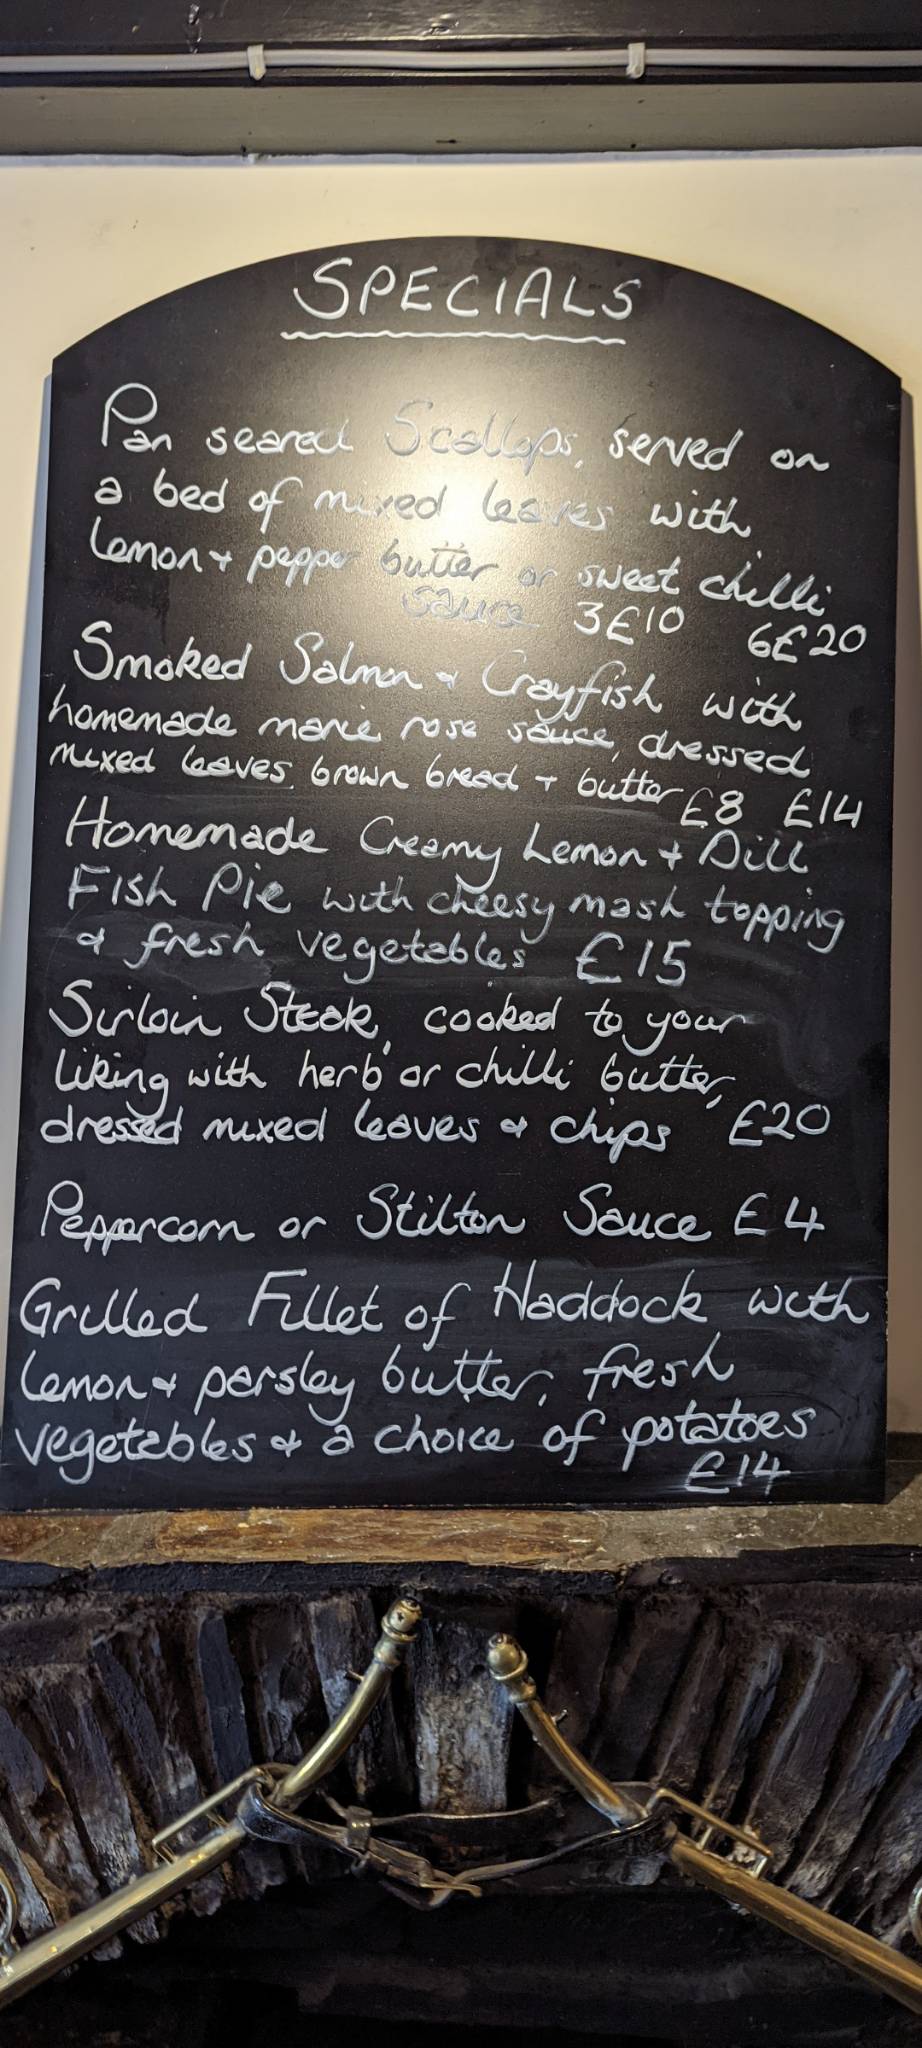 SPECIALS
Pan seared Scallops, served on
a bed of mixed leaves with
lemon + pepper butter or sweet chilli
sauce 3£10 6£20
Smoked Salmon & Crayfish with
homemade marie rose sauce, dressed
mixed leaves, brown bread + butter £8 £14
Homemade Creamy Lemon + Dill
Fish Pie with cheesy mash topping
& fresh vegetables £15
Sirloin Steak, cooked to your
liking with herb or chilli butter,
dressed mixed leaves & chips £20
Peppercorn or Stilton Sauce £4
Grilled Fillet of Haddock with
lemon & parsley butter, fresh
vegetables & a choice of potatoes
£14